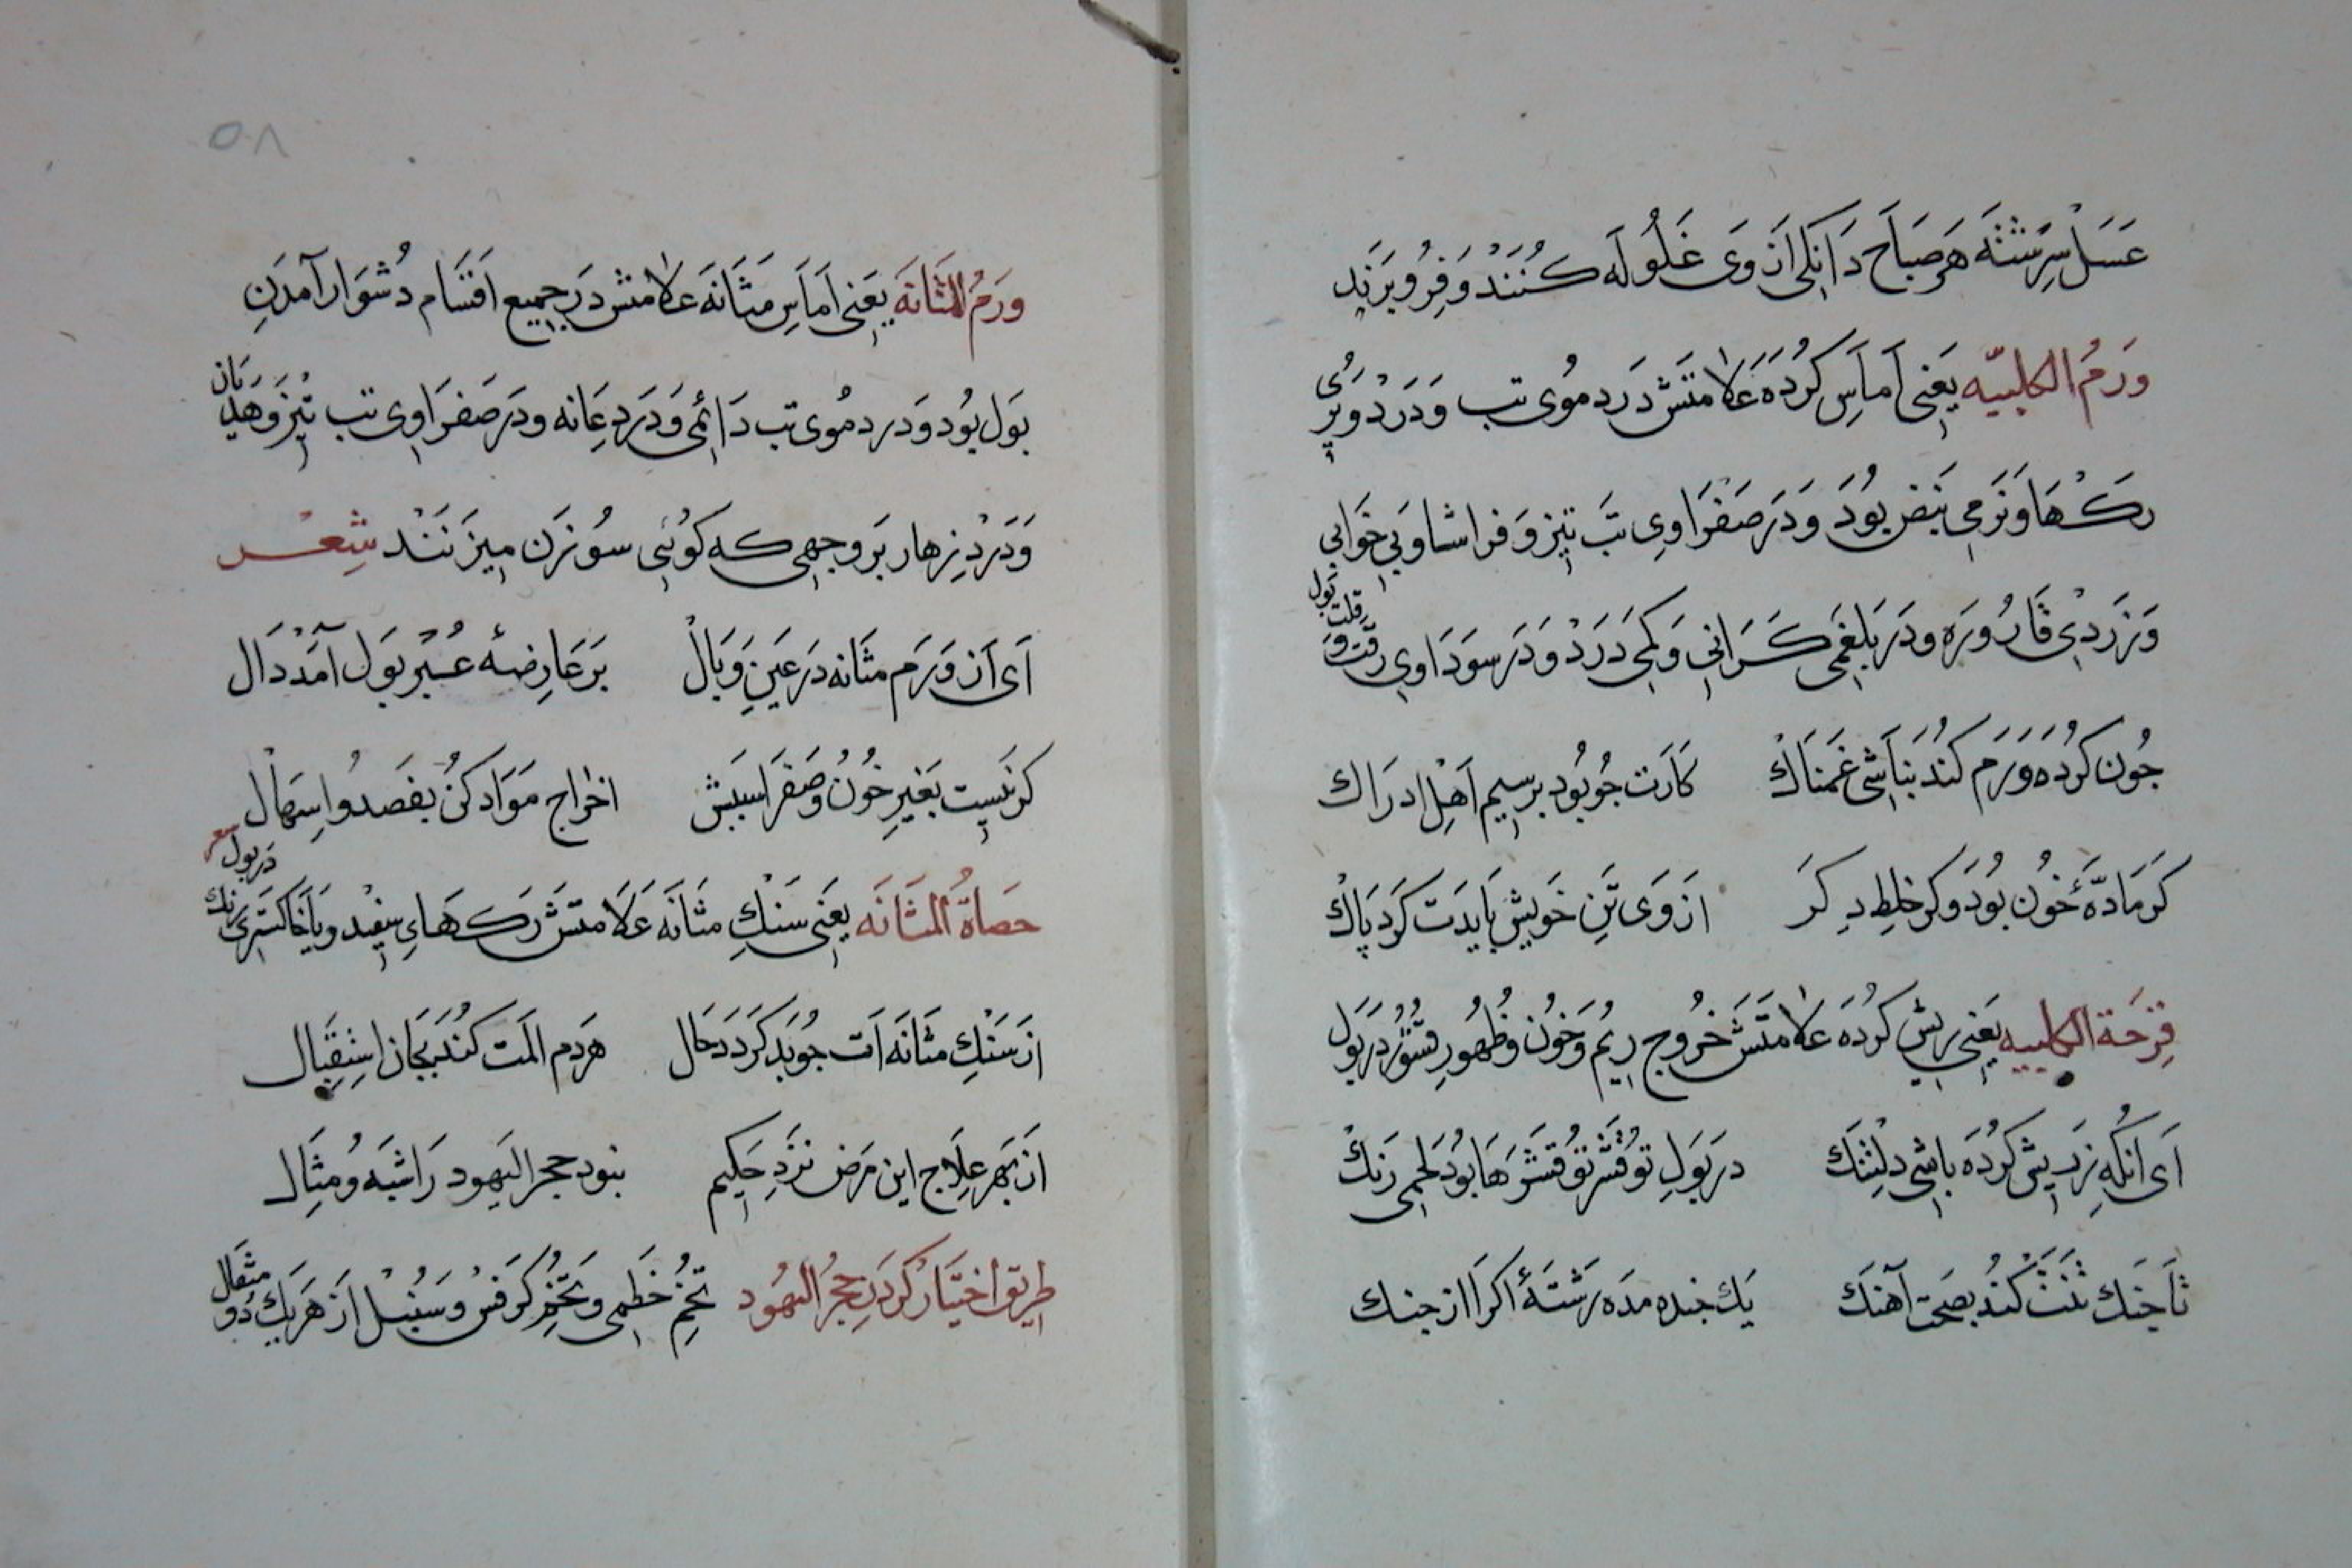 عَسَلْ سِرِشْتَه هَر صَبَاح دَانكی اَز وَی غَلُولَه كُنَنْدْ وَفِرُو بَرَند
وَرَمُ الكليیّه یَعنی اَماَسِ كُرْدَه عَلامَتَش دَر دموُی تب وَدَرْد وُپُرِی
رَكْهَا وَنَرمِی نبض بُوَد وَدَر صَفْرَاوِی تَب تیز وَ فراشا وبی خَوَابی
وَزَردْیِ قَارُورَه ودَر بَلغمَی كَرَانی وَكمی دَرَدْ وَدَر سَودَاوِی رقّت وَ قلت بَول
جُون كُرْدَه وَرَم كُنَد بَنَاشی غَمنَاكْ كَارَت جُو بُوَد بر سیم اَهْلِ ادرَاك
كَر مَادّهَٔ خُون بُوَد وَكر خلِطِ دِكَر از وَی تَنِ خَویش بَایدَت كَرد پَاكْ
قِرْحَة الكليیه یَعنی ریش كُرْدَه عَلامَتَش خُرُوج رِیْم وَخوُن وظُهُورِ قشُوْر دَر بَول
اَی انكه زِ ریش كُرْدَه باشی دلتنَك در بَوَلِ توُ قشر تو قشَرهَا بُوَد لحمی رَنكْ
تَا جَنك تَنَت كُنَد بصحت آهَنَك یَك جنده مَدَه رَشتَهٔ اكرا از جنك
٥٨
ورَمُ المثَانَه یَعنی اَمَاسِ مَثَانَه عَلامتش دَر جمیع اَقسَام دُشوَار آمدَنِ
بَول بُود وَدر دموُی تب دَائمی وَدَرد عَانه ودَر صَفرَاوِی تب تیز وهذیَان
وَدَرْد زِهار بَر وجهی كه كوُئی سوُزَن میزَنَنْد شِعْر
اَی اَز وَرَم مثَانه دَر عَینِ وَبَالْ بَر عَارِضهٔ عُسْرِ بَول آمَدْ دَال
كر نیست بَغیرِ خُون وصَفرَا سببَش اخرَاج مَوَاد كُنْ بفَصد وُاسِهَالْ
حَصاة المثَانَه یعَنی سَنْكِ مثَانَه عَلَامتَش رَكهَایِ سفید وَیَا خاكستَری رَنك دَر بول شعر
از سَنْكِ مثَانَه اَت جُو بَد كَردَد حَال هَردَم المَت كُنَد بَجَان اسِتِقبَال
اَز بَهرِ عِلَاج این مَرض نَزدِ حَكیم نبود حجر الیَهود رَا شبَه وُمثِال
طریق اختیَار كَردَنِ حجَرُ الیهُود تخم خَطمی وَتخم كَرفَس وسُنبُل اَز هَر یك دو مثقال